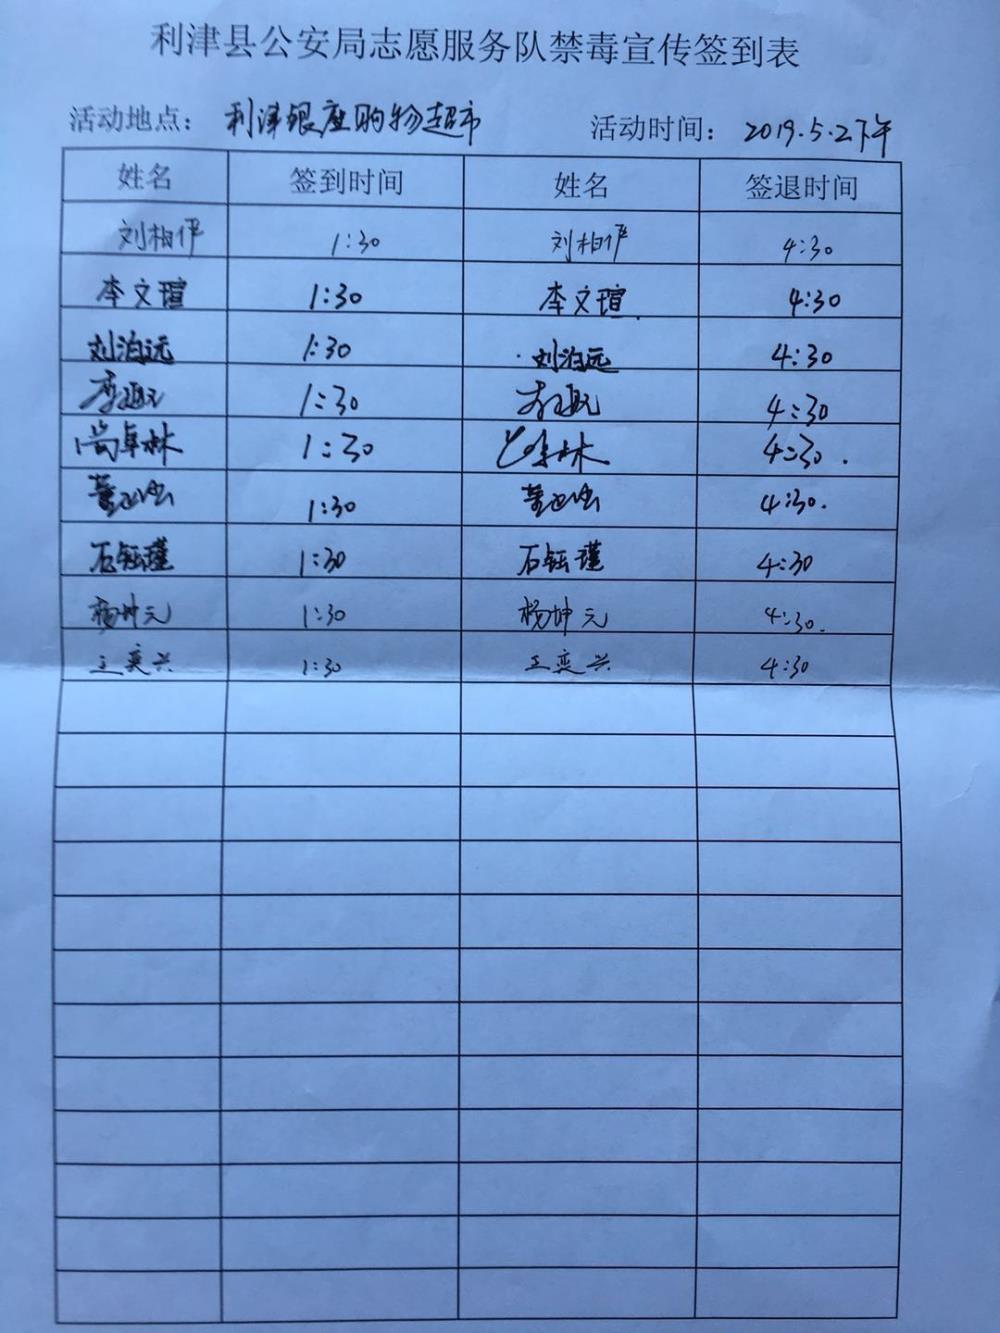 利津县公安局志愿服务队禁毒宣传签到表
活动地点： 利津银座购物超市 活动时间： 2019.5.2下午
姓名 签到时间 姓名 签退时间
刘相伊 1:30 刘相伊 4:30
李文瑄 1:30 李文瑄 4:30
刘泊远 1:30 刘泊远 4:30
1:30 4:30
尚卓林 1:30 4:30.
1:30 4:30.
石钰瑾 1:30 石钰瑾 4:30
杨坤元 1:30 杨坤元 4:30.
王奕兴 1:30 王奕兴 4:30